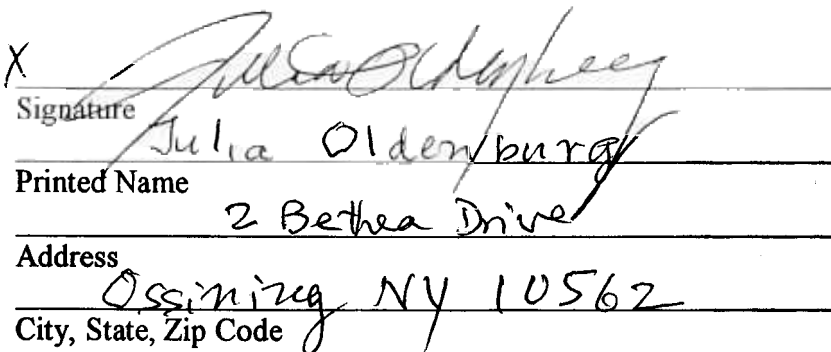 X Julia Oldenburg
Signature
Julia Oldenburg
Printed Name
2 Bethea Drive
Address
Ossining NY 10562
City, State, Zip Code